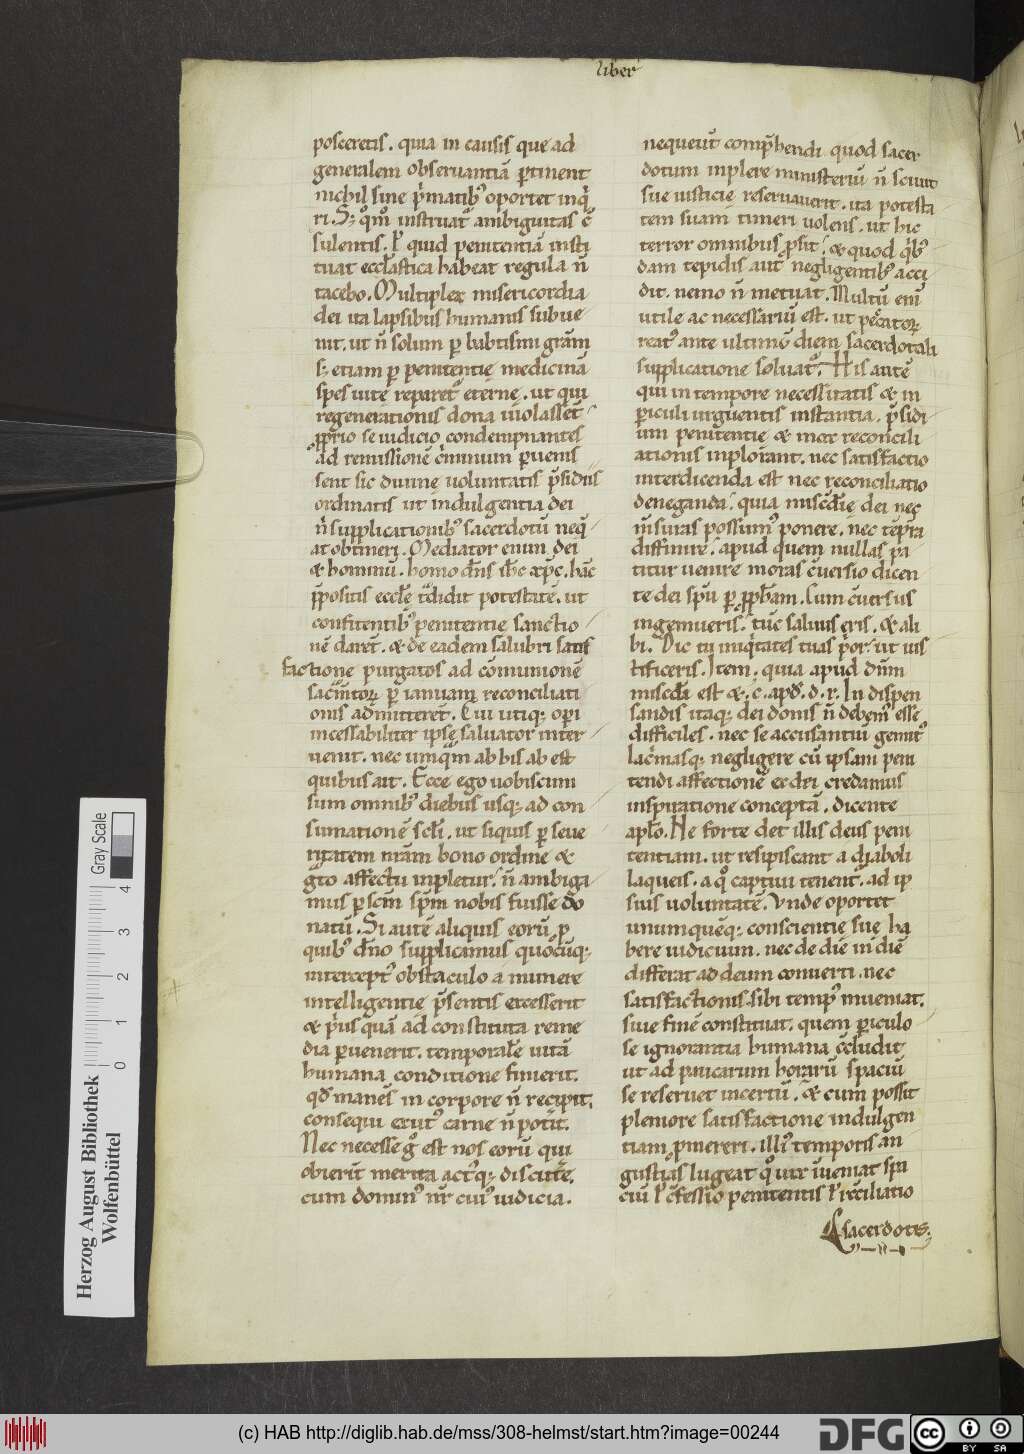 liber
posceretis. quia in causis que ad
generalem obseruantiā ꝑtinent
nichil sine p̄matibꝰ oportet inq̄
ri. Sꝫ qm̄ instruat᷒ ambiguitas c̄
sulentis. ł quid penitentiā insti
tuat eccl̄astica habeat regula n̄
tacebo. Multiplex misericordia
dei ita lapsibus humanis subue
nit. ut n̄ solum ꝑ babtismi grām
sꝫ etiam ꝑ penitentię medicinā
spes uitę reparet᷒ eternę. ut qui
regenerationis dona uiolassēt
ꝓprio se iudicio condempnantes
ad remissionē c̄minum ꝑuenis
sent sic diuinę uoluntatis p̄sidiis
ordinatis ut indulgentia dei
n̄ supplicationibꝰ sacerdotū neq̄
at obtineri. Mediator enim dei
& hominū. homo xp̄c ih̄c xp̄c. hāc
p̄positis ecclę̄ t̄didit potestatē. ut
confitentibꝰ penitentię sanctio
nē darēt. & de eadem salubri satis
factione purgatos ad cōmunionē
sac̄mtoꝝ ꝑ ianuam reconciliati
onis admitterēt. Cui utiqꝫ oꝑi
incessabiliter ipse saluator inter
uenit. nec umq̄m ab his abest
quibus ait. Ecce ego uobiscum
sum omnibꝰ diebus usqꝫ ad con
sumationē scl̄i. ut siquis ꝑ serui
tutem nr̄am bono ordine &
g̊to affectu inpletur. n̄ ambiga
mus ꝑ scm̄ spm̄ nobis fuisse do
natū. Si autē aliquis eorū ꝓ
quibꝰ dn̄o supplicamus quocūqꝫ
interceptꝰ obstaculo a munere
intelligentię p̄sentis excesserit
& p̄us quā ad constituta reme
dia ꝑuenerit. temporalē uitā
humana conditione finierit.
qd̄ manēs in corpore n̄ recipit.
consequi exutꝰ carne n̄ potit.
Nec necesse g̊ est nos eorū qui
obierūt merita actꝰqꝫ discutē.
cum dominꝰ nr̄ cuiꝰ iudicia.
nequeūt comp̄hendi quod sacer
dotum inplere ministeriū n̄ sciuit
suę iusticię reseruauerit. ita potesta
tem suam timeri uolens. ut hic
terror omnibus ꝓsit. & quod q̄bꝰ
dam tepidis aut᷒ negligentibꝰ acci
dit. nemo n̄ metuat. Multū enī
utile ac necessariū est. ut pec̄catoꝝ
reatꝰ ante ultimū diem sacerdotali
supplicatione soluat᷒. His autē
qui in tempore necessitatis & in
ꝑiculi urguentis instantia. p̄sidi
um penitentię & mox reconcili
ationis inplorant. nec satisfactio
interdicenda est nec reconciliatio
deneganda. quia misc̄dię dei nec
m̄suras possumꝰ ponere. nec tēpra
diffinire. apud quem nullas pa
titur uenire moras c̄uersio dicen
te dei spū ꝑ ꝓph̄am. Cum c̄uersus
ingemueris. tūc saluus eris. & ali
bi. Dic tu iniq̄tates tuas p̄or. ut ius
tificeris. Item. quia apud dn̄m
misc̄dia est &. c. apd̄. d. r. In dispen
sandis itaqꝫ dei donis n̄ debemꝰ esse
difficiles. nec se accusantiū gemitꝰ
lac̄masqꝫ negligere cū ipsam peni
tendi affectionē ex dei credamus
inspiratione conceptā. dicente
apl̄o. Ne forte det illis deus peni
tentiam. ut resipiscant a diaboli
laqueis. a qͦ captiui tenent᷒. ad ip
sius uoluntatē. Vnde oportet
unumquēqꝫ conscientię suę ha
bere iudicium. nec de die in diē
differat ad deum conuerti. nec
satisfactionis sibi tempꝰ inueniat.
siue finē constituat. quem ꝑiculo
se ignorantia humana c̄cludit
ut ad paucarum horarū spaciū
se reseruet incertū. & cum possit
pleniore satisfactione indulgen
tiam ꝓmereri. illiꝰ temporis an
gustias lugeat qͦ uix iueniat spa
ciū ł c̄fessio penitentis ł rec̄ciliatio
sacerdotis.
Herzog August Bibliothek
Wolfenbüttel
Gray Scale
0 1 2 3 4
(c) HAB http://diglib.hab.de/mss/308-helmst/start.htm?image=00244
DFG
cc
BY SA